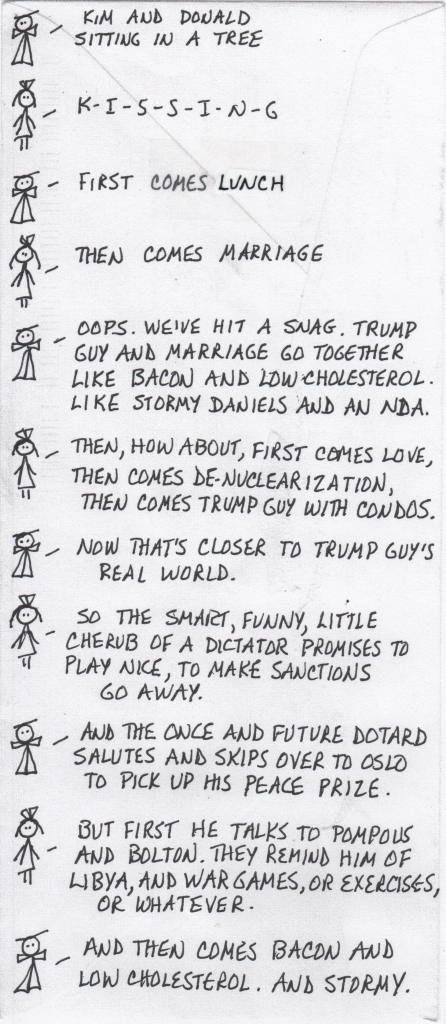 KIM AND DONALD
SITTING IN A TREE
K-I-S-S-I-N-G
FIRST COMES LUNCH
THEN COMES MARRIAGE
OOPS. WE'VE HIT A SNAG. TRUMP
GUY AND MARRIAGE GO TOGETHER
LIKE BACON AND LOW CHOLESTEROL.
LIKE STORMY DANIELS AND AN NDA.
THEN, HOW ABOUT, FIRST COMES LOVE,
THEN COMES DE-NUCLEARIZATION,
THEN COMES TRUMP GUY WITH CONDOS.
NOW THAT'S CLOSER TO TRUMP GUY'S
REAL WORLD.
SO THE SMART, FUNNY, LITTLE
CHERUB OF A DICTATOR PROMISES TO
PLAY NICE, TO MAKE SANCTIONS
GO AWAY.
AND THE ONCE AND FUTURE DOTARD
SALUTES AND SKIPS OVER TO OSLO
TO PICK UP HIS PEACE PRIZE.
BUT FIRST HE TALKS TO POMPOUS
AND BOLTON. THEY REMIND HIM OF
LIBYA, AND WAR GAMES, OR EXERCISES,
OR WHATEVER.
AND THEN COMES BACON AND
LOW CHOLESTEROL. AND STORMY.